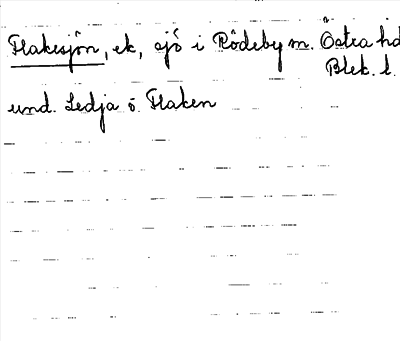 Flakesjön, ek, sjö i Rödeby sn. Östra hd
Blek. l.
und. Ledja ö. Flaken